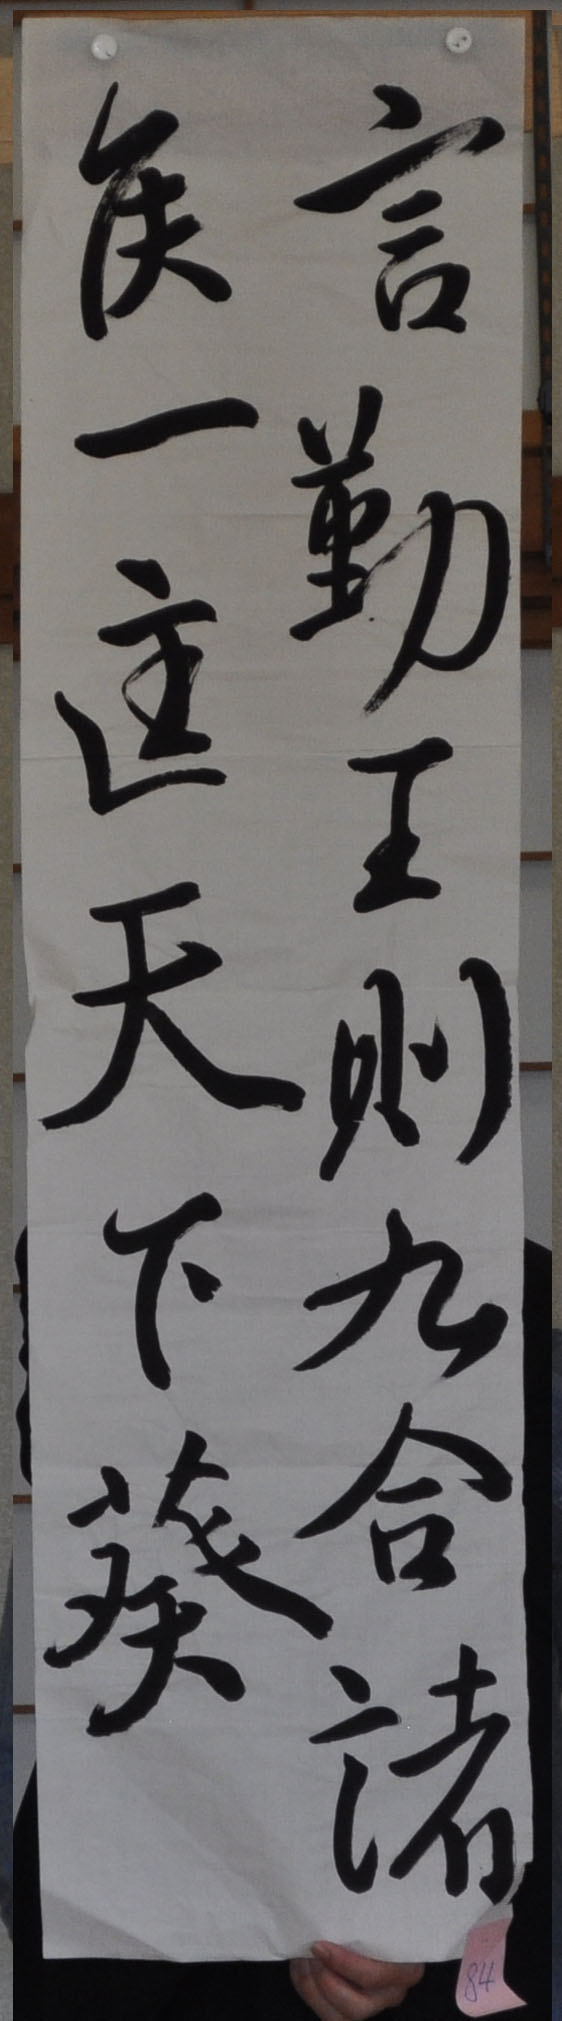 言勤王則九合諸
侯一匡天下葵
84